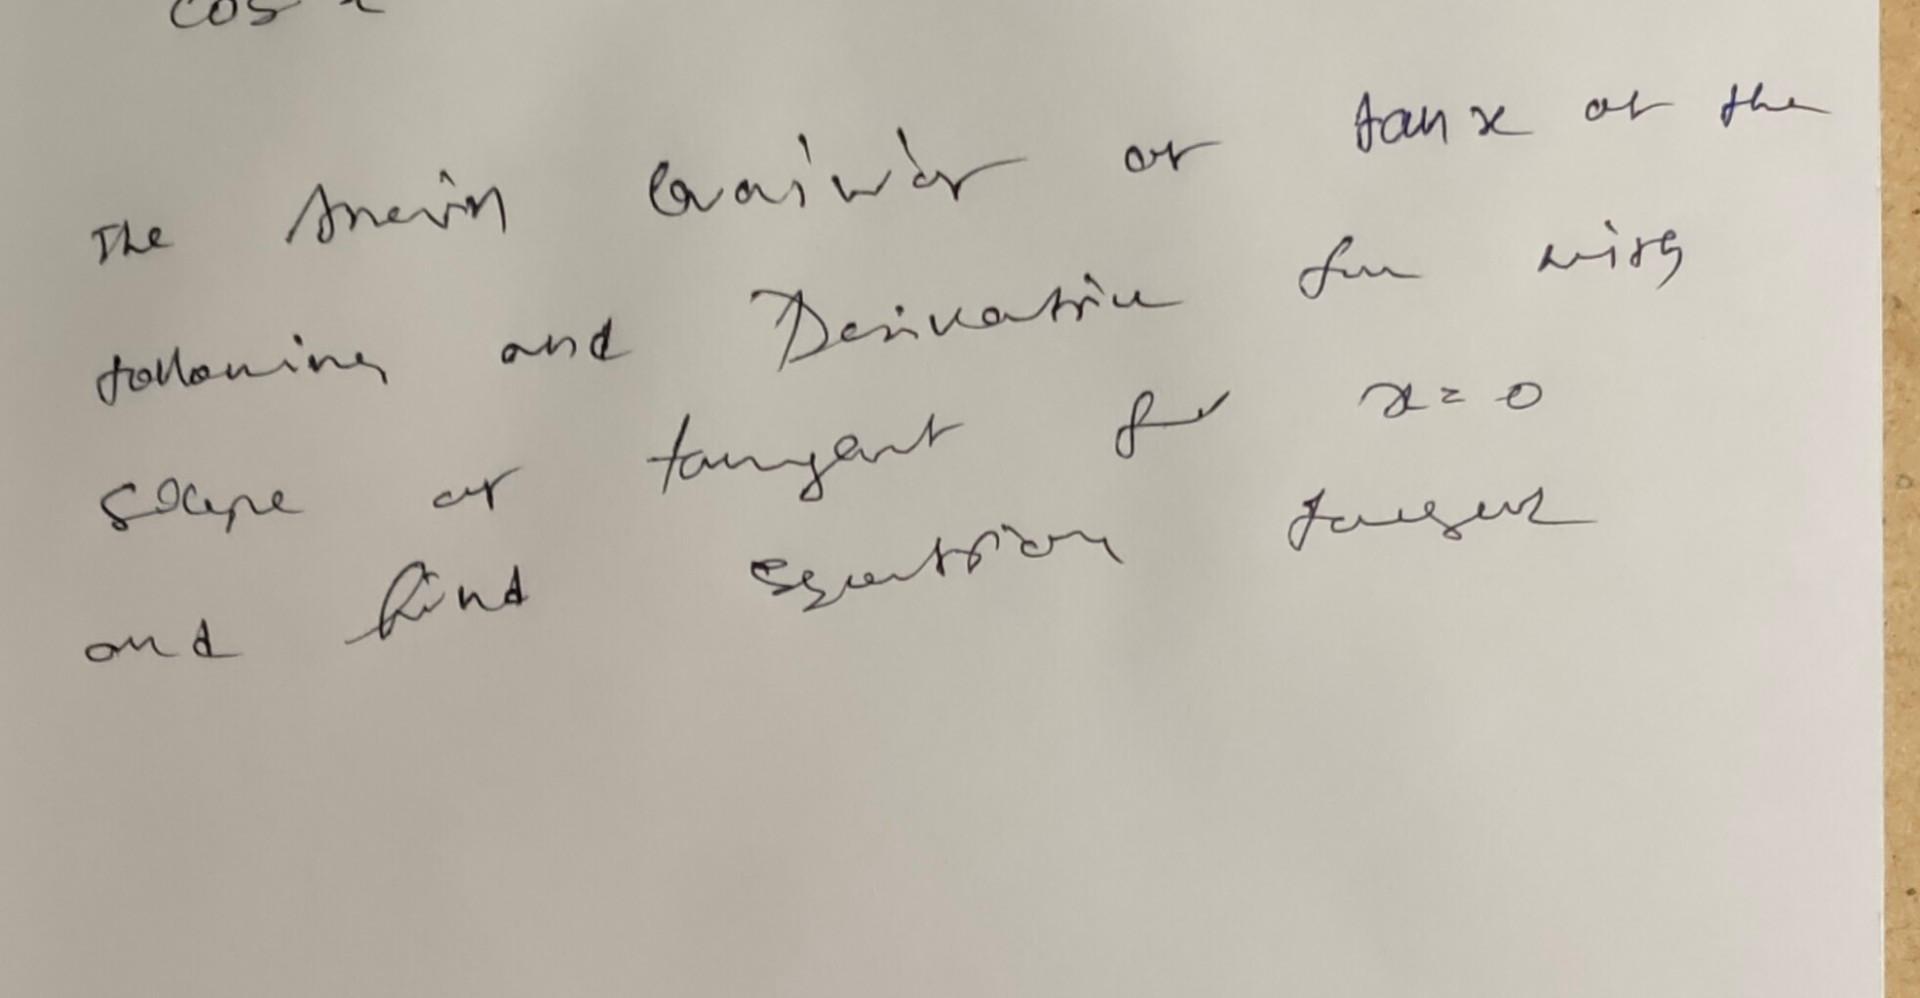 cos x
The or tan x at the
following and Derivative for with
slope at tangent for x = 0
and find equation tangent